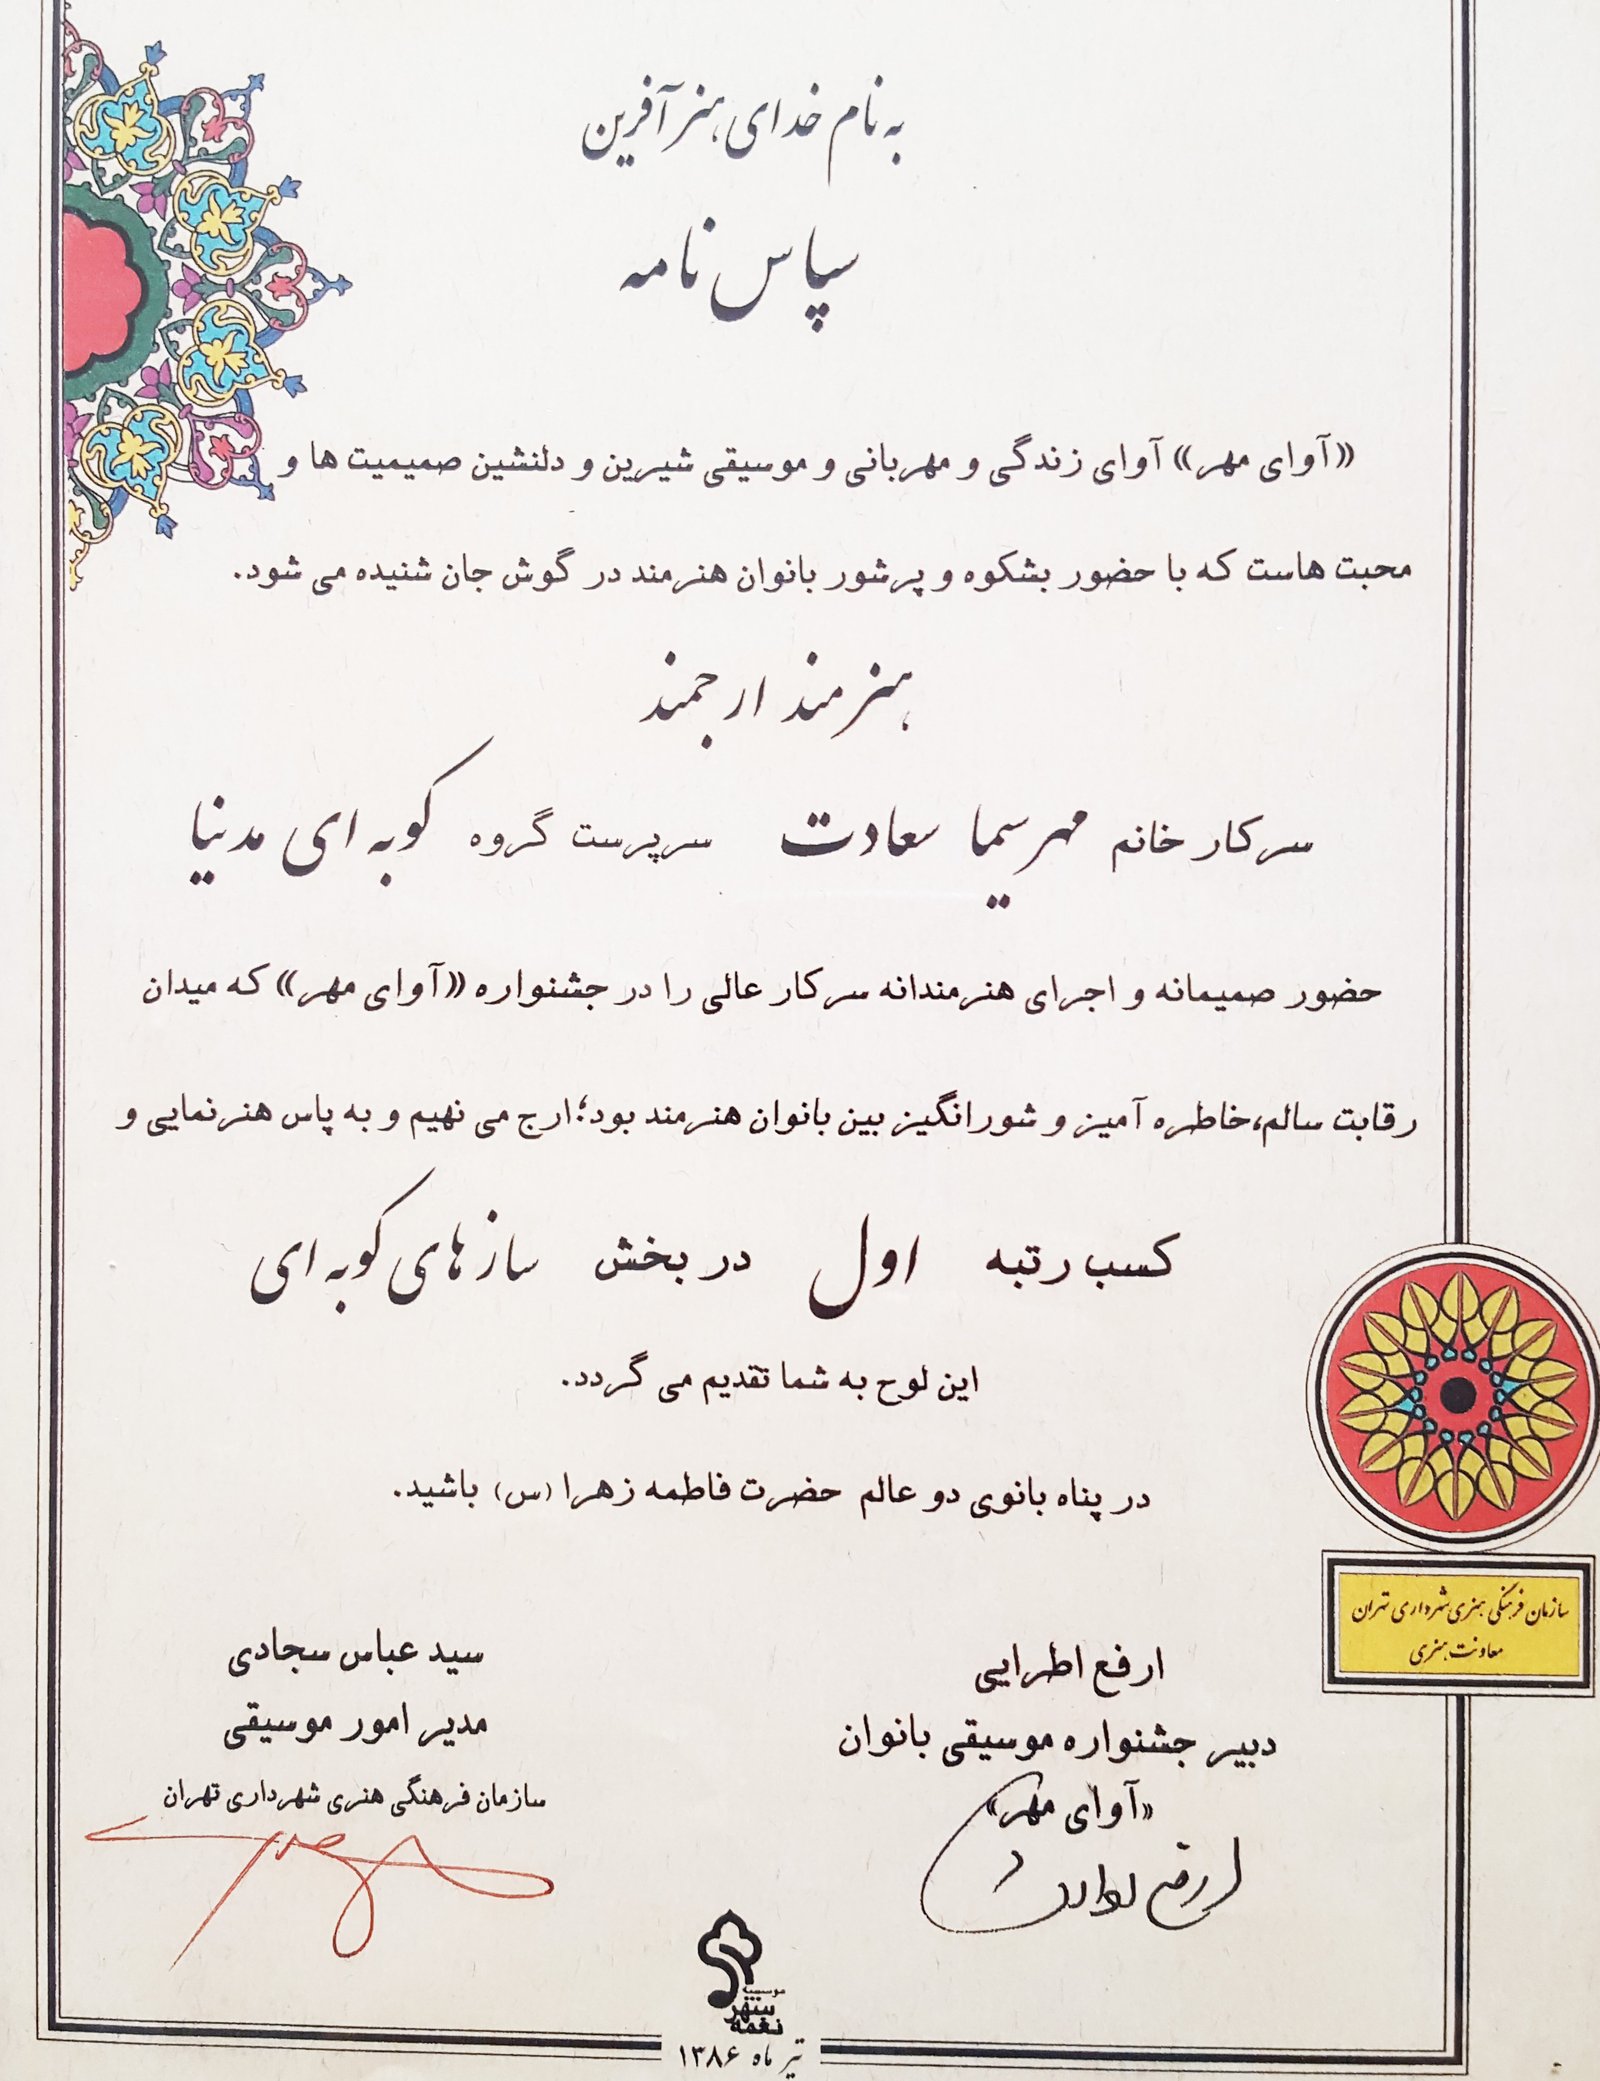 به نام خدای هنرآفرین
سپاس نامه
«آوای مهر» آوای زندگی و مهربانی و موسیقی شیرین و دلنشین صمیمیت ها و
محبت هاست که با حضور بشکوه و پرشور بانوان هنرمند در گوش جان شنیده می شود.
هنرمند ارجمند
سرکار خانم مهرسیما سعادت سرپرست گروه کوبه ای مدنیا
حضور صمیمانه و اجرای هنرمندانه سرکار عالی را در جشنواره «آوای مهر» که میدان
رقابت سالم،خاطره آمیز و شورانگیز بین بانوان هنرمند بود؛ارج می نهیم و به پاس هنرنمایی و
کسب رتبه اول در بخش سازهای کوبه ای
این لوح به شما تقدیم می گردد.
در پناه بانوی دو عالم حضرت فاطمه زهرا (س) باشید.
سازمان فرهنگی هنری شهرداری تهران
معاونت هنری
ارفع اطرایی
دبیر جشنواره موسیقی بانوان
«آوای مهر»
سید عباس سجادی
مدیر امور موسیقی
سازمان فرهنگی هنری شهرداری تهران
موسسه
نغمه شهر
تیر ماه ۱۳۸۶